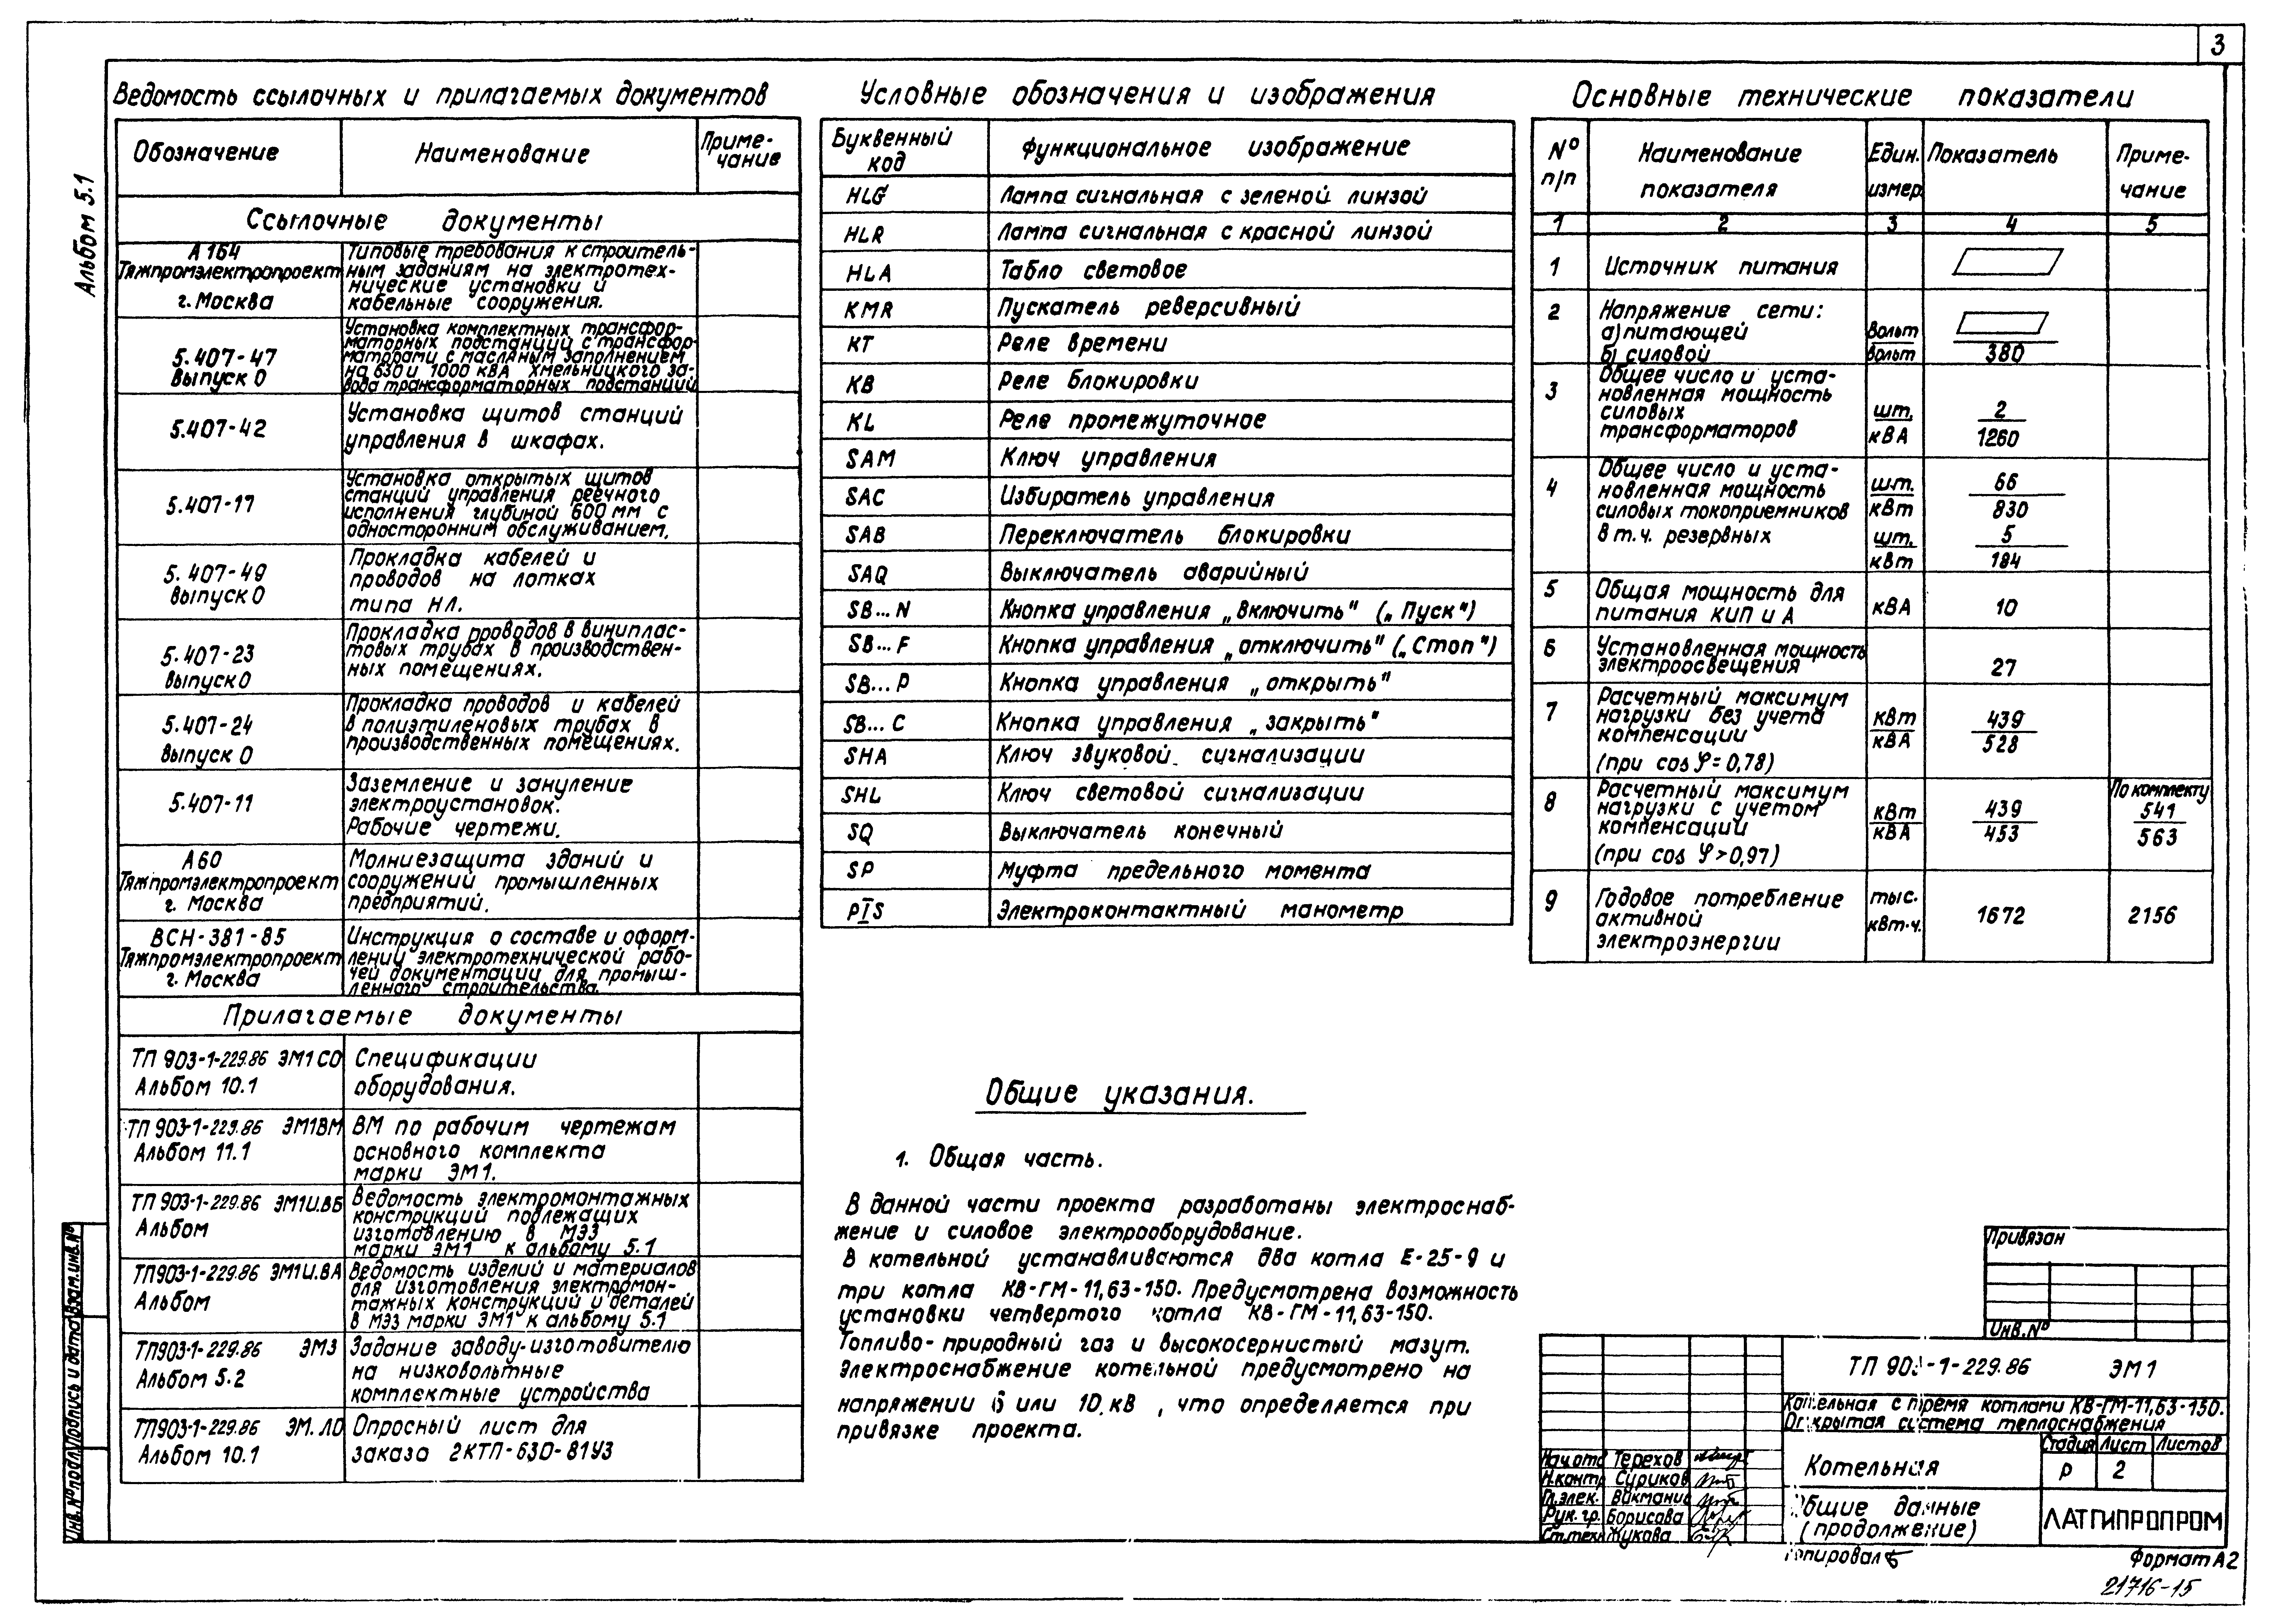 3
Альбом 5.1
Ведомость ссылочных и прилагаемых документов
Обозначение
Наименование
Приме-
чание
Ссылочные документы
А164
Тяжпромэлектропроект
г. Москва
Типовые требования к строитель-
ным заданиям на электротех-
нические установки и
кабельные сооружения.
5.407-47
Выпуск 0
Установка комплектных трансфор-
маторных подстанций с трансфор-
маторами с масляным заполнением
на 630 и 1000 кВА Хмельницкого за-
вода трансформаторных подстанций
5.407-42
Установка щитов станций
управления в шкафах.
5.407-17
Установка открытых щитов
станций управления реечного
исполнения глубиной 600 мм с
односторонним обслуживанием.
5.407-49
Выпуск 0
Прокладка кабелей и
проводов на лотках
типа НЛ.
5.407-23
Выпуск 0
Прокладка проводов в виниплас-
товых трубах в производствен-
ных помещениях.
5.407-24
Выпуск 0
Прокладка проводов и кабелей
в полиэтиленовых трубах в
производственных помещениях.
5.407-11
Заземление и зануление
электроустановок.
Рабочие чертежи.
А60
Тяжпромэлектропроект
г. Москва
Молниезащита зданий и
сооружений промышленных
предприятий.
ВСН-381-85
Тяжпромэлектропроект
г. Москва
Инструкция о составе и оформ-
лении электротехнической рабо-
чей документации для промыш-
ленного строительства.
Прилагаемые документы
ТП 903-1-229.86 ЭМ1 СО
Альбом 10.1
Спецификации
оборудования.
ТП 903-1-229.86 ЭМ1ВМ
Альбом 11.1
ВМ по рабочим чертежам
основного комплекта
марки ЭМ1.
ТП 903-1-229.86 ЭМ1И.ВБ
Альбом
Ведомость электромонтажных
конструкций подлежащих
изготовлению в МЭЗ
марки ЭМ1 к альбому 5.1
ТП903-1-229.86 ЭМ1И.ВА
Альбом
Ведомость изделий и материалов
для изготовления электромон-
тажных конструкций и деталей
в МЭЗ марки ЭМ1 к альбому 5.1
ТП903-1-229.86 ЭМ3
Альбом 5.2
Задание заводу-изготовителю
на низковольтные
комплектные устройства
ТП903-1-229.86 ЭМ.ЛО
Альбом 10.1
Опросный лист для
заказа 2КТП-630-81У3
Условные обозначения и изображения
Буквенный
код
Функциональное изображение
HLG Лампа сигнальная с зеленой линзой
HLR Лампа сигнальная с красной линзой
HLA Табло световое
KMR Пускатель реверсивный
KT Реле времени
KB Реле блокировки
KL Реле промежуточное
SAM Ключ управления
SAC Избиратель управления
SAB Переключатель блокировки
SAQ Выключатель аварийный
SB...N Кнопка управления „включить" („Пуск")
SB...F Кнопка управления „отключить" („Стоп")
SB...P Кнопка управления „открыть"
SB...C Кнопка управления „закрыть"
SHA Ключ звуковой сигнализации
SHL Ключ световой сигнализации
SQ Выключатель конечный
SP Муфта предельного момента
PIS Электроконтактный манометр
Основные технические показатели
№
п/п
Наименование
показателя
Един.
измер.
Показатель
Приме-
чание
1 2 3 4 5
1 Источник питания
2 Напряжение сети:
а) питающей Вольт
б) силовой Вольт 380
3 Общее число и уста-
новленная мощность
силовых шт. 2
трансформаторов кВА 1260
4 Общее число и уста-
новленная мощность шт. 66
силовых токоприемников кВт 830
в т.ч. резервных шт. 5
кВт 184
5 Общая мощность для
питания КИП и А кВА 10
6 Установленная мощность
электроосвещения 27
7 Расчетный максимум
нагрузки без учета кВт 439
компенсации кВА 528
(при cos φ = 0,78)
8 Расчетный максимум По комплекту
нагрузки с учетом кВт 439 541
компенсации кВА 453 563
(при cos φ > 0,97)
9 Годовое потребление тыс.
активной кВт.ч. 1672 2156
электроэнергии
Общие указания.
1. Общая часть.
В данной части проекта разработаны электроснаб-
жение и силовое электрооборудование.
В котельной устанавливаются два котла Е-25-9 и
три котла КВ-ГМ-11,63-150. Предусмотрена возможность
установки четвертого котла КВ-ГМ-11,63-150.
Топливо-природный газ и высокосернистый мазут.
Электроснабжение котельной предусмотрено на
напряжении 6 или 10 кВ, что определяется при
привязке проекта.
Привязан
Инв.№
ТП 903-1-229.86 ЭМ1
Котельная с тремя котлами КВ-ГМ-11,63-150.
Открытая система теплоснабжения
Котельная
Стадия Лист Листов
Р 2
Общие данные
(продолжение)
ЛАТГИПРОПРОМ
Нач.отд Терехов
Н.контр Суриков
Гл.элек. Викманис
Рук.гр. Борисова
Ст.техн Жукова
Копировал
Формат А2
21716-15
Взам.инв.№
Подпись и дата
Инв.№подл.